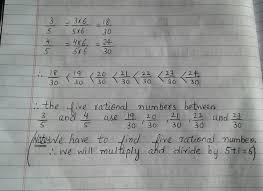 3/5 = 3×6/5×6 = 18/30
4/5 = 4×6/5×6 = 24/30
∴ 18/30 < 19/30 < 20/30 < 21/30 < 22/30 < 23/30 < 24/30
∴ the five rational numbers between
3/5 and 4/5 are 19/30, 20/30, 21/30, 22/30 and 23/30
(Note: We have to find five rational numbers
∴ we will multiply and divide by 5+1=6)